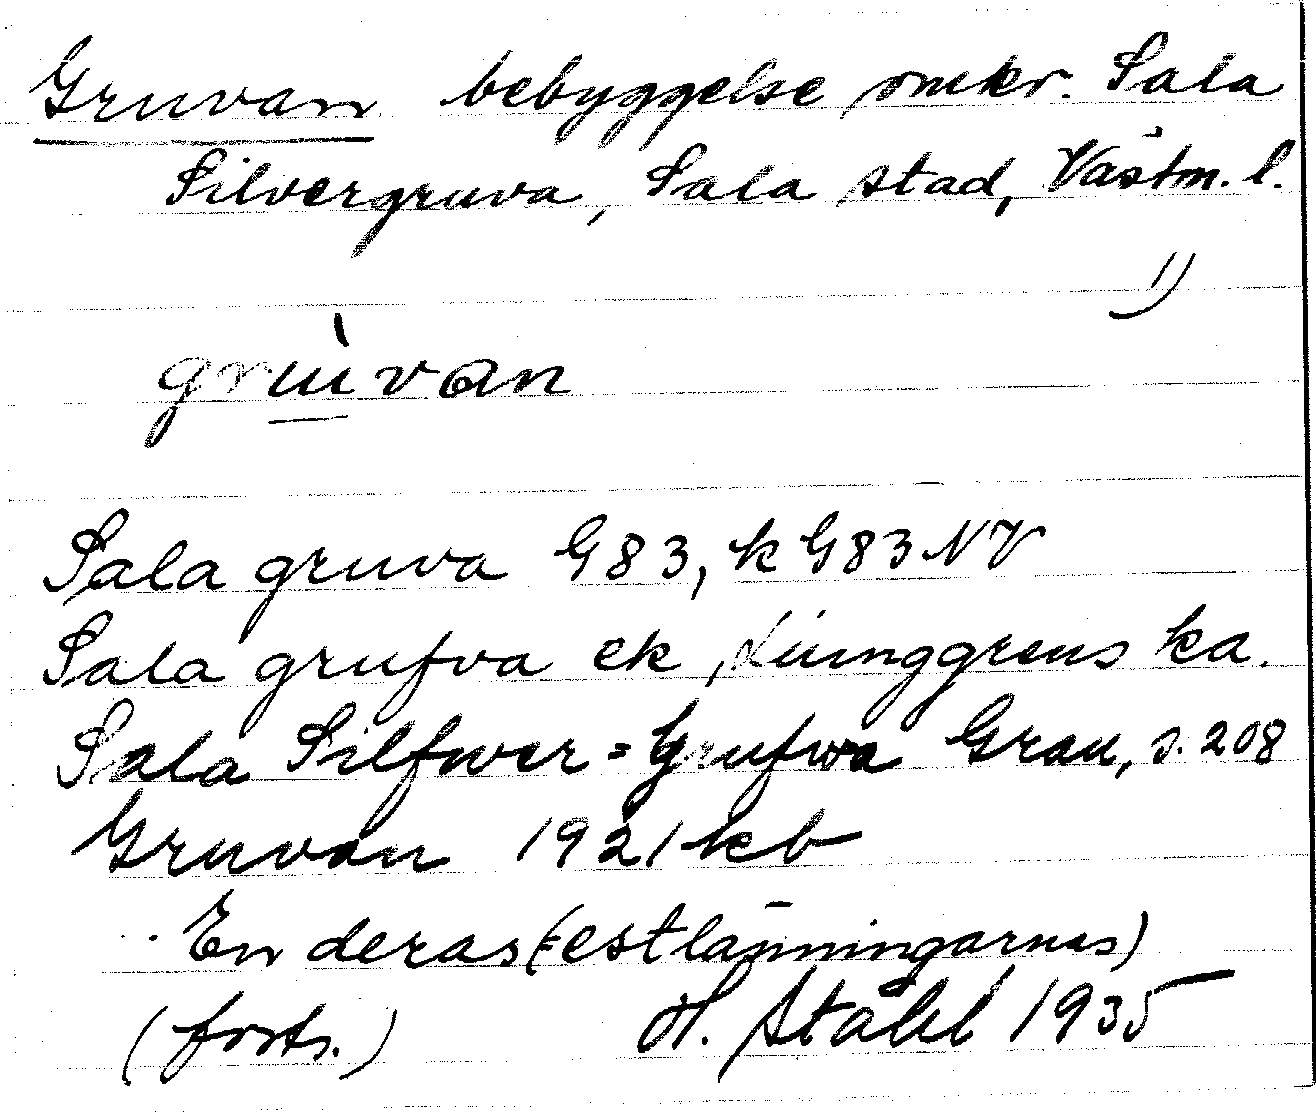 Gruvan bebyggelse omkr. Sala
Silvergruva, Sala stad, Västm. l.
1)
grùvan
Sala gruva G83, k G83 NV
Sala grufva ek, Ljunggrens ka.
Sala Silfwer=Grufwa Grau, s. 208
Gruvan 1921 kb
En deras (=estlänningarnas)
(forts.) H. Ståhl 1935